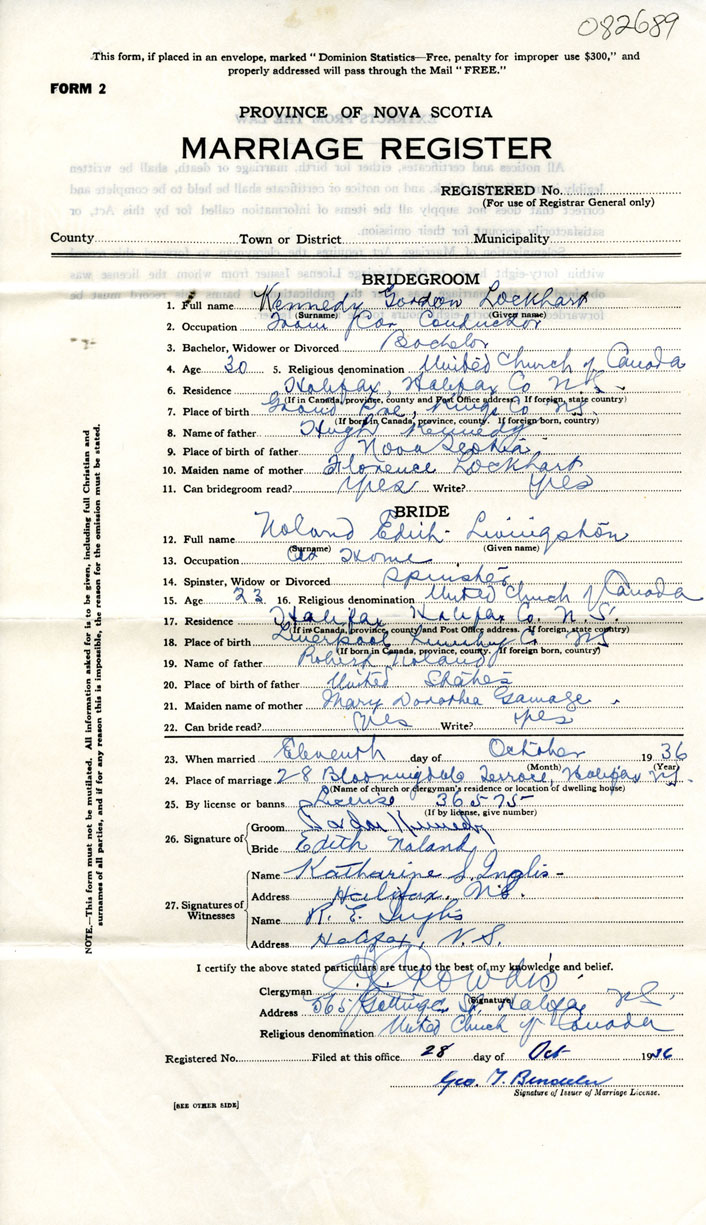 082689
This form, if placed in an envelope, marked "Dominion Statistics—Free, penalty for improper use $300," and
properly addressed will pass through the Mail "FREE."
FORM 2
PROVINCE OF NOVA SCOTIA
MARRIAGE REGISTER
REGISTERED No.
(For use of Registrar General only)
County Town or District Municipality
BRIDEGROOM
1. Full name Kennedy Gordon Lockhart
(Surname) (Given name)
2. Occupation Tram Car Conductor
3. Bachelor, Widower or Divorced Bachelor
4. Age 30 5. Religious denomination United Church of Canada
6. Residence Halifax, Halifax Co N.S.
(If in Canada, province, county and Post Office address. If foreign, state country)
7. Place of birth Grand Pre, Kings Co N.S.
(If born in Canada, province, county. If foreign born, country)
8. Name of father Hugh Kennedy
9. Place of birth of father Nova Scotia
10. Maiden name of mother Florence Lockhart
11. Can bridegroom read? Yes Write? Yes
BRIDE
12. Full name Noland Edith Livingston
(Surname) (Given name)
13. Occupation At Home
14. Spinster, Widow or Divorced Spinster
15. Age 23 16. Religious denomination United Church of Canada
17. Residence Halifax Halifax Co. N.S.
(If in Canada, province, county and Post Office address. If foreign, state country)
18. Place of birth Liverpool Co NS
(If born in Canada, province, county. If foreign born, country)
19. Name of father Robert Noland
20. Place of birth of father United States
21. Maiden name of mother Mary Dorothea Gamage
22. Can bride read? Yes Write? Yes
23. When married Eleventh day of October 1936
(Month) (Year)
24. Place of marriage 28 Bloomingdale Terrace, Halifax N.S.
(Name of church or clergyman's residence or location of dwelling house)
25. By license or banns License 36575
(If by license, give number)
26. Signature of Groom Gordon Kennedy
Bride Edith Noland
27. Signatures of Witnesses
Name Katharine S. Inglis
Address Halifax, N.S.
Name R. E. Inglis
Address Halifax, N.S.
I certify the above stated particulars are true to the best of my knowledge and belief.
Clergyman
(Signature)
Address 565 Gottingen St Halifax NS
Religious denomination United Church of Canada
Registered No. Filed at this office 28 day of Oct 1936
Geo. T.
Signature of Issuer of Marriage License.
[SEE OTHER SIDE]
NOTE.—This form must not be mutilated. All information asked for is to be given, including full Christian and
surnames of all parties, and if for any reason this is impossible, the reason for the omission must be stated.